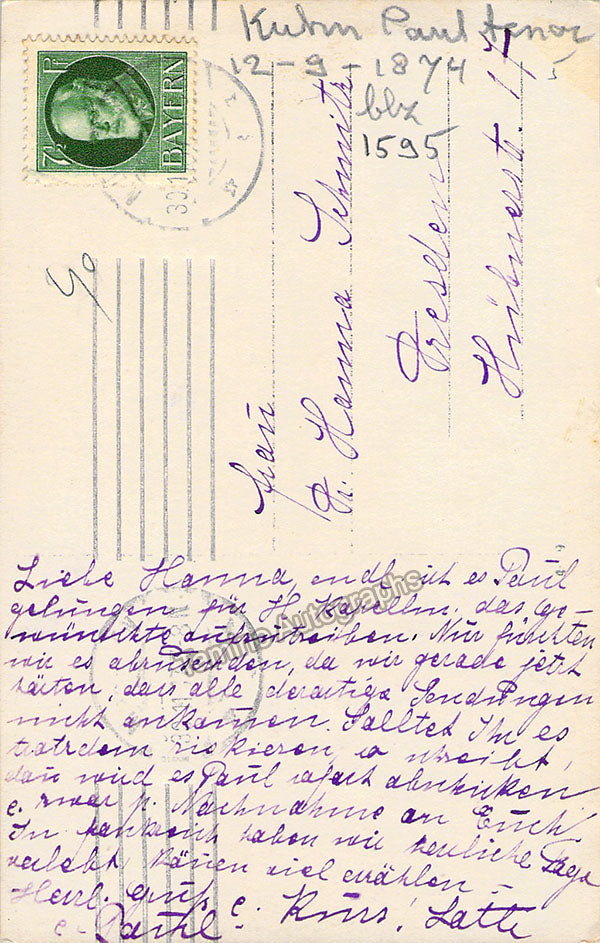 Kuhn Paul tenor
12-9-1874
bbz
1595
7½ Pf
BAYERN
40
Frau
Dr. Hanna Schmitz
Dresden
Hübnerstr. 17
Liebe Hanna, endl. ist es Paul
gelungen für H. das ge-
wünschte aufzutreiben. Nur fürchten
wir es abzusenden, da wir gerade jetzt
hörten, dass alle derartige Sendungen
nicht ankomen. Solltet Ihr es
trotzdem riskieren so schreibt,
dan wird es Paul sofort abschicken
e. zwar p. Nachnahme an Euch.
In haben wir herrliche Tage
verlebt, könen viel erzählen -
Herzl. Gruß e. Kuss! Lotte
e. Paul.
Tamino Autographs